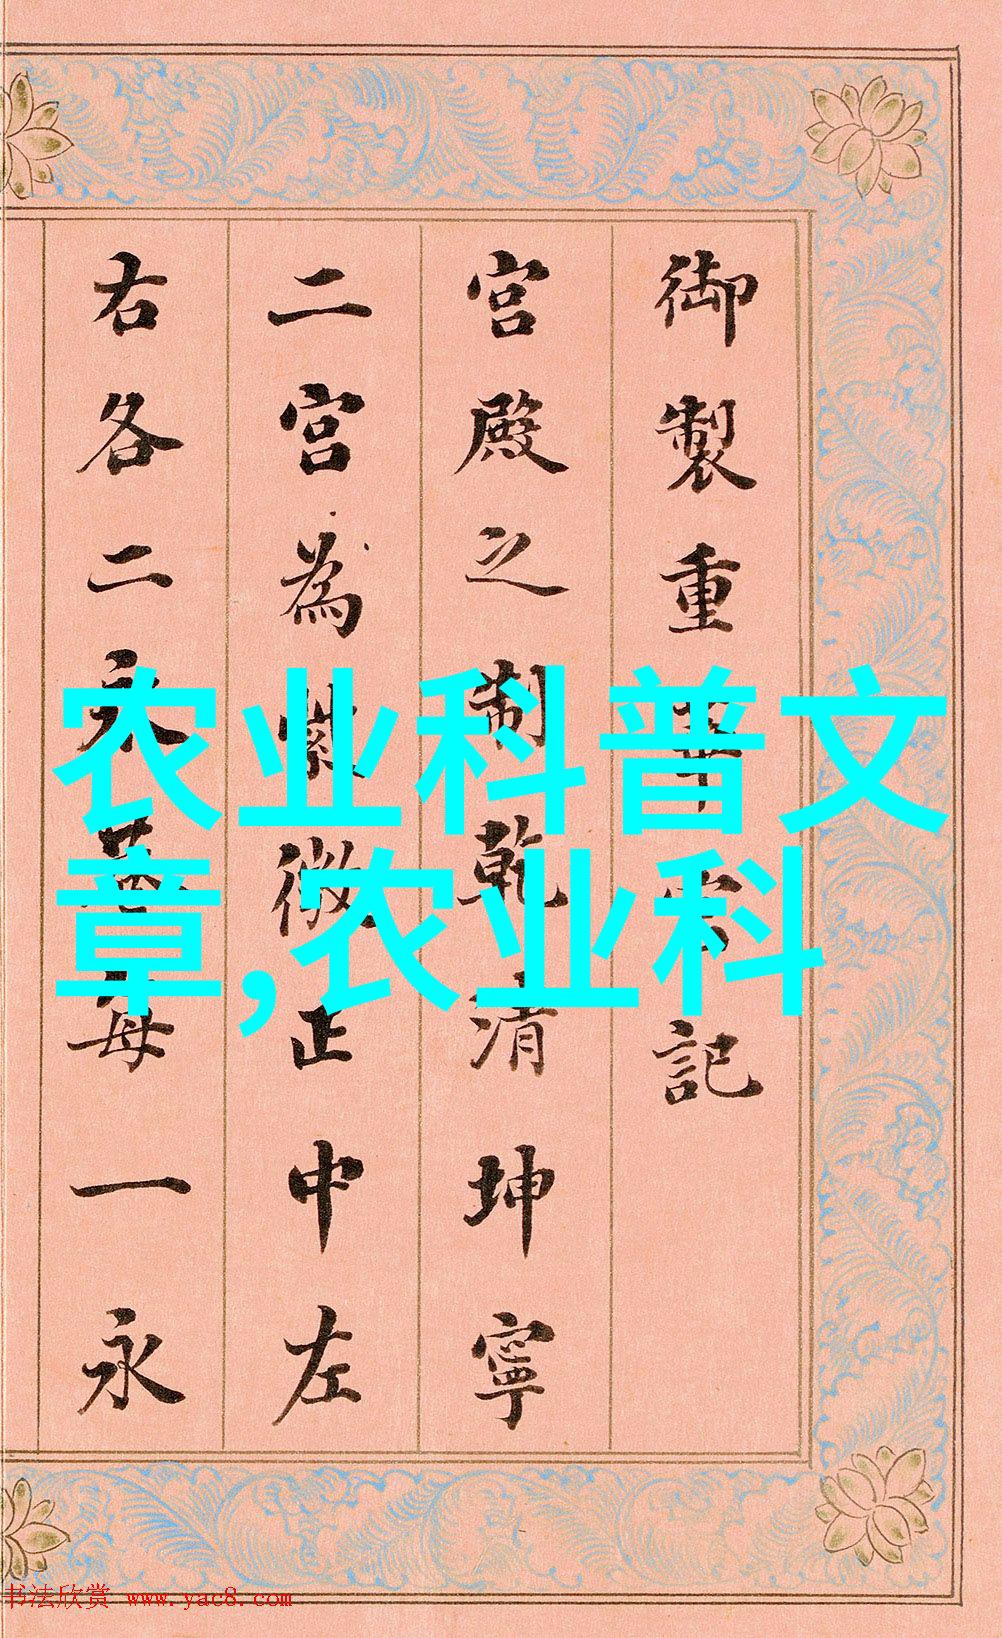 御製重華宮記
宮殿之制乾清坤寧
二宮為紫微正中左
右各二永巷每一永
农业科普文
章,农业科
书法欣赏 www.yac8.com